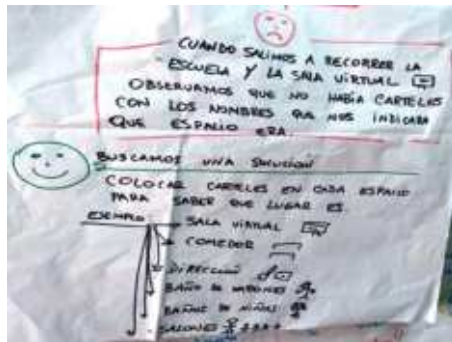 CUANDO SALIMOS A RECORRER LA
ESCUELA Y LA SALA VIRTUAL
OBSERVAMOS QUE NO HABÍA CARTELES
CON LOS NOMBRES QUE NOS INDICARA
QUE ESPACIO ERA.
BUSCAMOS UNA SOLUCIÓN
COLOCAR CARTELES EN CADA ESPACIO
PARA SABER QUE LUGAR ES
EJEMPLO SALA VIRTUAL
COMEDOR
DIRECCIÓN
BAÑO DE VARONES
BAÑOS DE NIÑAS
SALONES